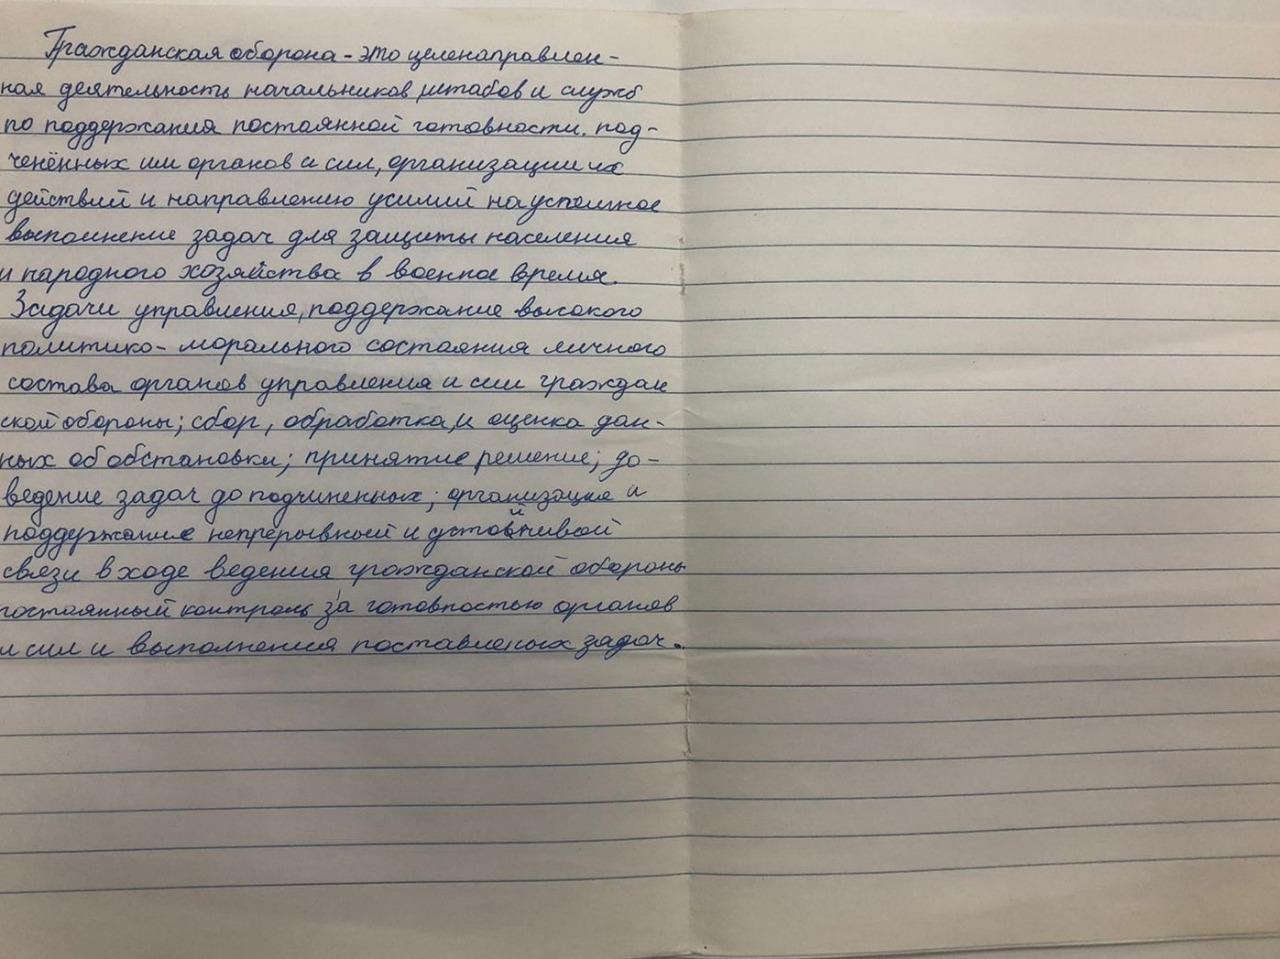 Гражданская оборона - это целенаправлен-
ная деятельность начальников, штабов и служб
по поддержания постоянной готовности. под-
ченённых им органов и сил, организации их
действий и направлению усилий на успешное
выполнение задач для защиты населения
и народного хозяйства в военное время.
Задачи управления, поддержание высокого
политико- морального состояния личного
состава органов управления и сил граждан
ской обороны; сбор, обработка, и оценка дан-
ных об обстановки; принятие решение; до-
ведение задач до подчиненных; организация и
поддержание непрерывной и устойчивой
связи в ходе ведения гражданской обороны
постоянный контроль за готовностью органов
и сил и выполнения поставленых задач.